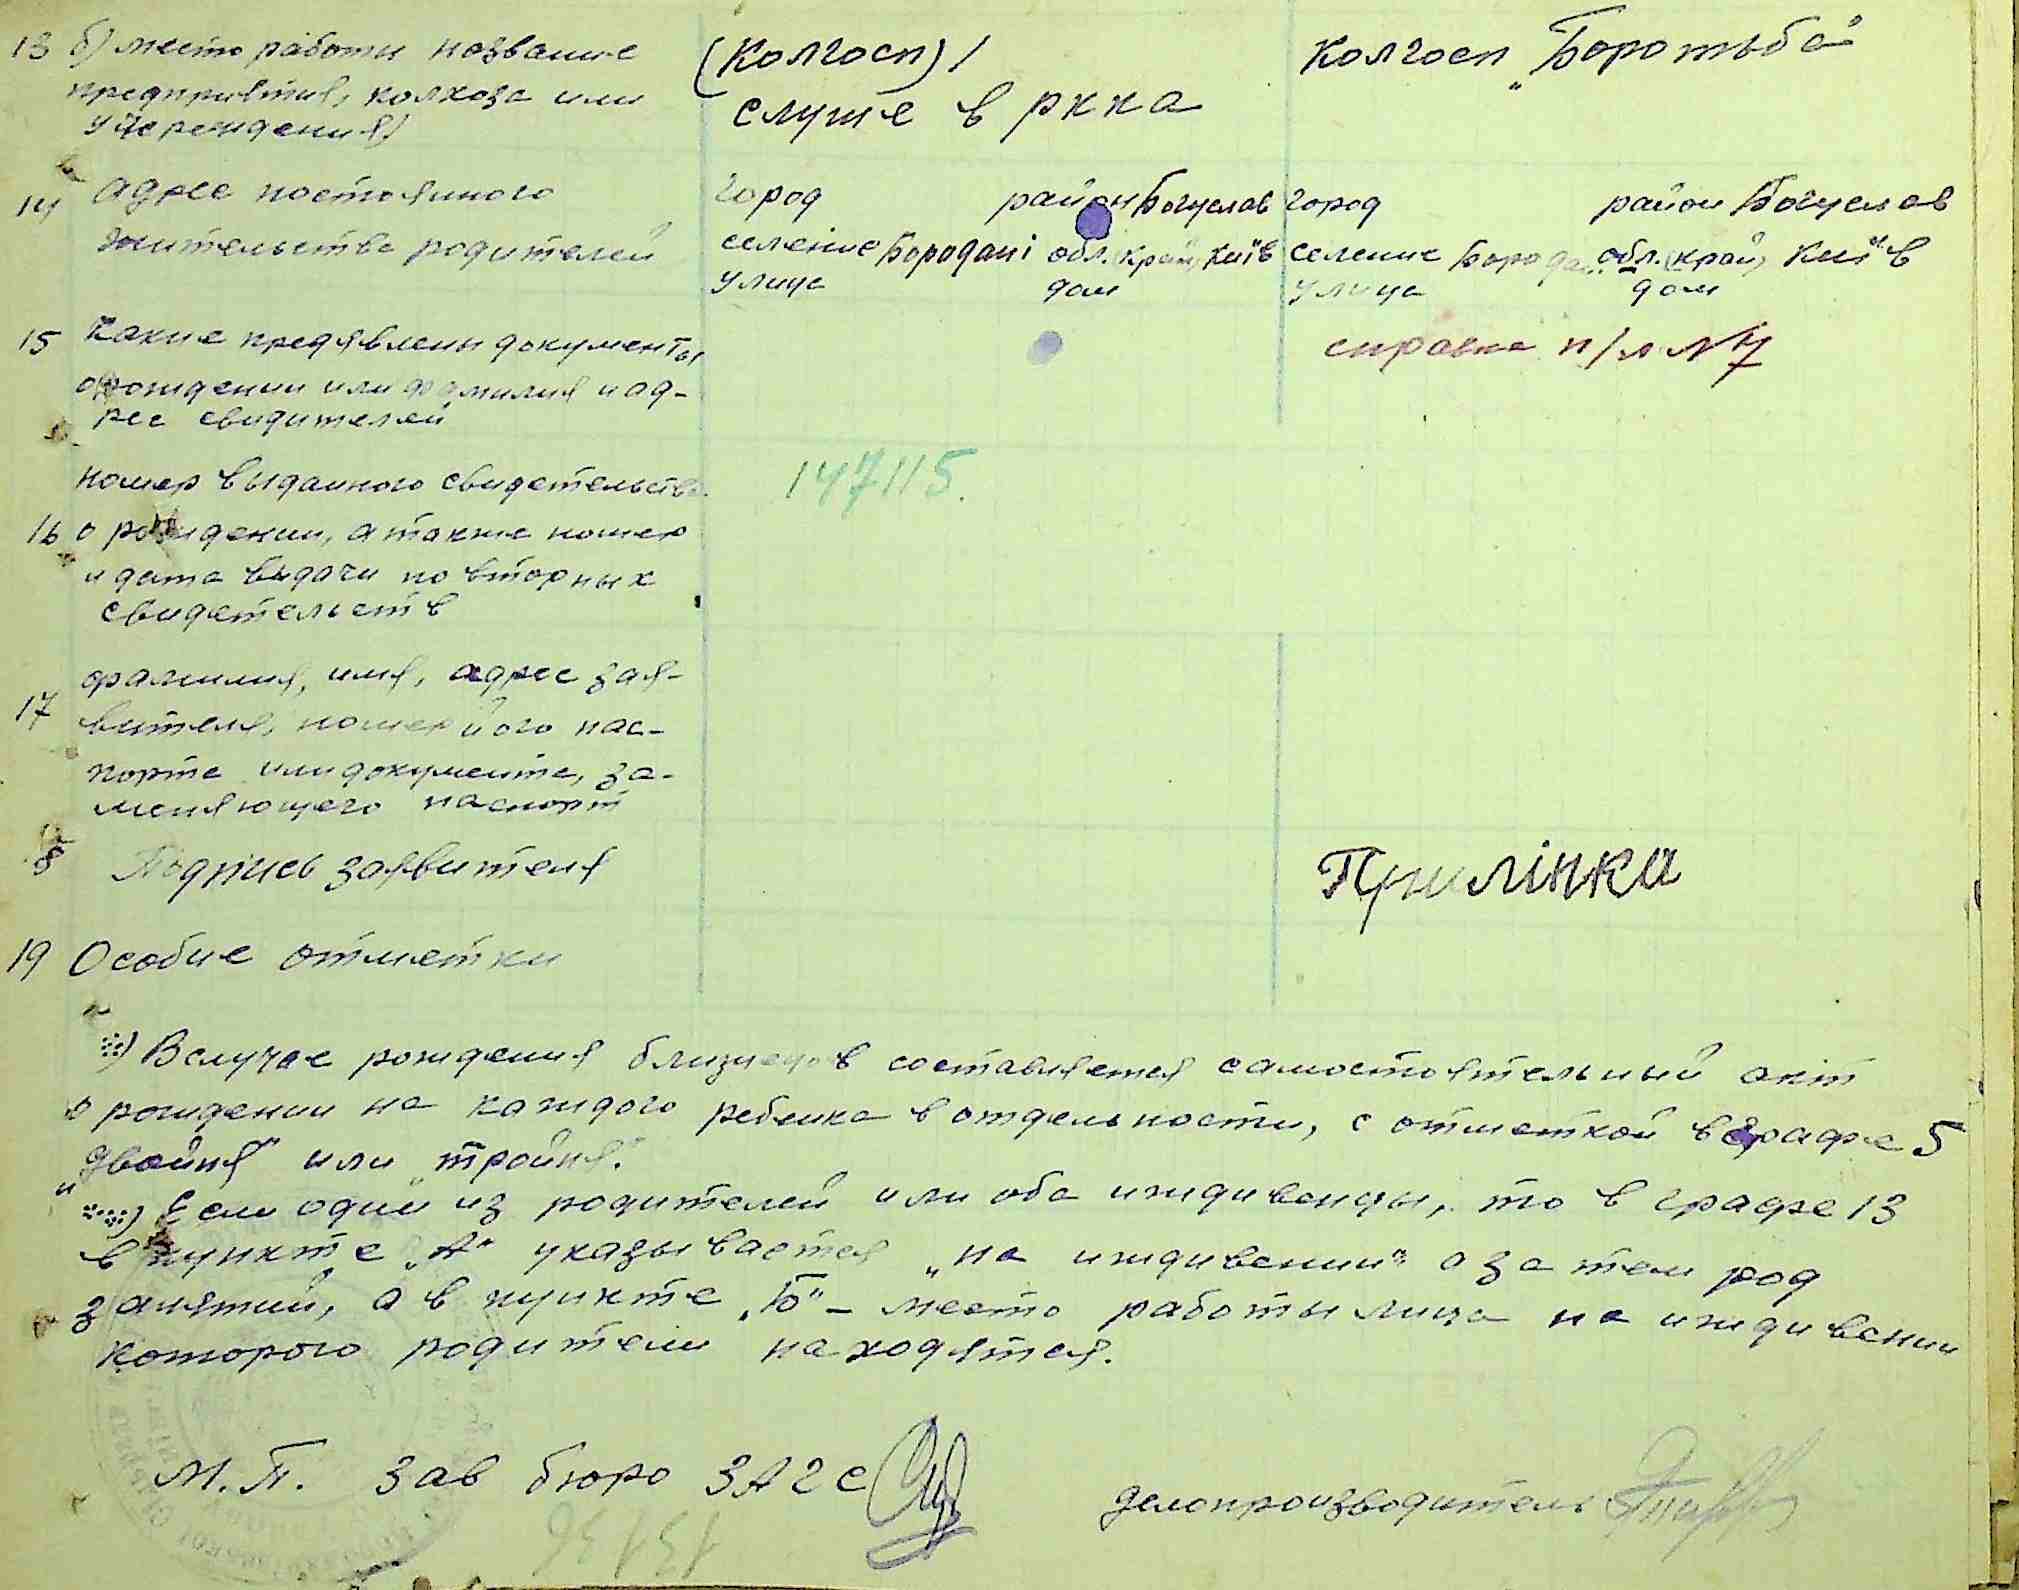 13 б) место работы название (Колгосп) / Колгосп „Боротьба"
предприятия, колхоза или
учереждения) служе в ркка
14 адрес постоянного город район Богуслав город район Богуслав
жительства родителей селение Бородані обл. (край) Київ селение Борода обл. (край) Київ
улица дом улица дом
15 Какие предявлены документы справка п/л N 7
о рождении или фамилия и ад-
рес свидителей
номер выданного свидетельства 147115.
16 о рождении, а также номер
и дата выдачи повторных
свидетельств
фамилия, имя, адрес зая-
17 вителя, номер його пас-
порта или документа, за-
меняющего паспорт
18 Подпись заявителя Прилінка
19 Особие отметки
В случае рождения близнецов составляется самостоятельный акт
о рождении на каждого ребенка в отдельности, с отметкой в графе 5
„двойня" или „тройня."
Если один из родителей или оба иждивенцы, то в графе 13
в пункте „А" указывается „на иждивении" а затем род
занятий, а в пункте „Б" – место работы лица на иждивении
которого родители находятся.
М.П. Зав бюро ЗАГС делопроизводитель